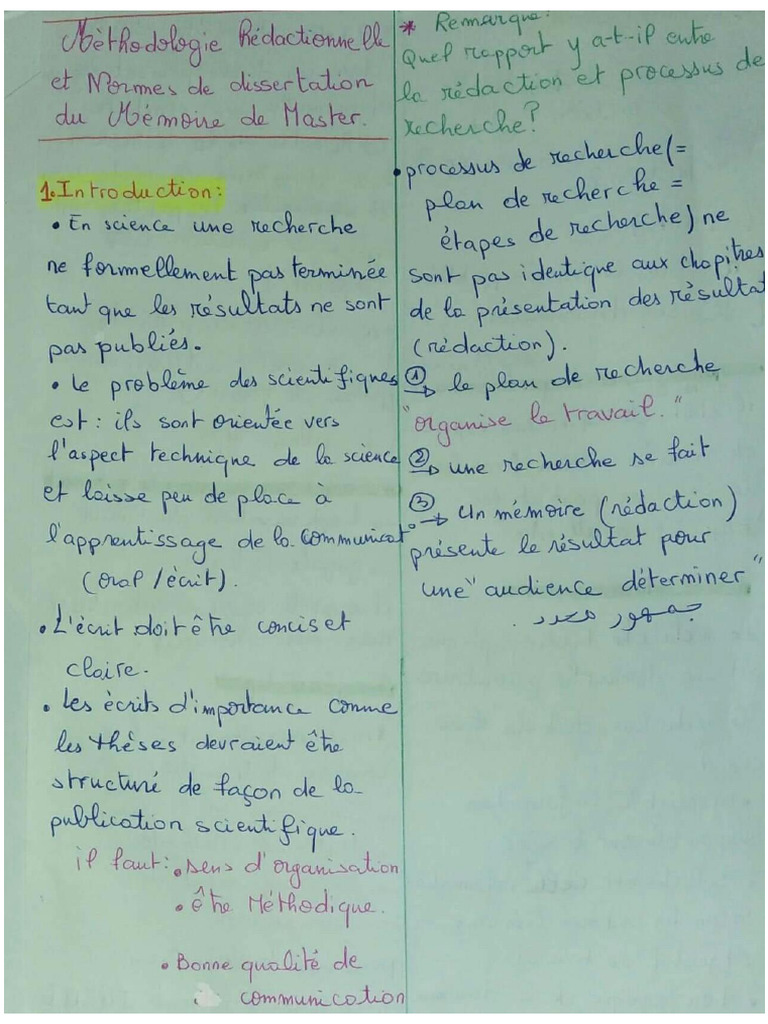 Mèthodologie Rédactionnelle
et Normes de dissertation
du Mémoire de Master.
1. Introduction:
• En science une recherche
ne formellement pas terminée
tant que les résultats ne sont
pas publiés.
• Le problème des scientifiques
est: ils sont orientée vers
l'aspect technique de la science
et laisse peu de place à
l'apprentissage de la communicat°
(oral / écrit).
• L'écrit doit être concis et
claire.
• Les écrits d'importance comme
les thèses devraient être
structuré de façon de la
publication scientifique.
il faut: • sens d'organisation
• être Méthodique.
• Bonne qualité de
communication
* Remarque:
Quel rapport y a-t-il entre
la rédaction et processus de
recherche?
• processus de recherche (=
plan de recherche =
étapes de recherche) ne
sont pas identique aux chapitres
de la présentation des résultat
(rédaction).
① → le plan de recherche
"organise le travail."
② → une recherche se fait
③ → Un mémoire (rédaction)
présente le résultat pour
une "audience déterminer"
جمهور محدد .